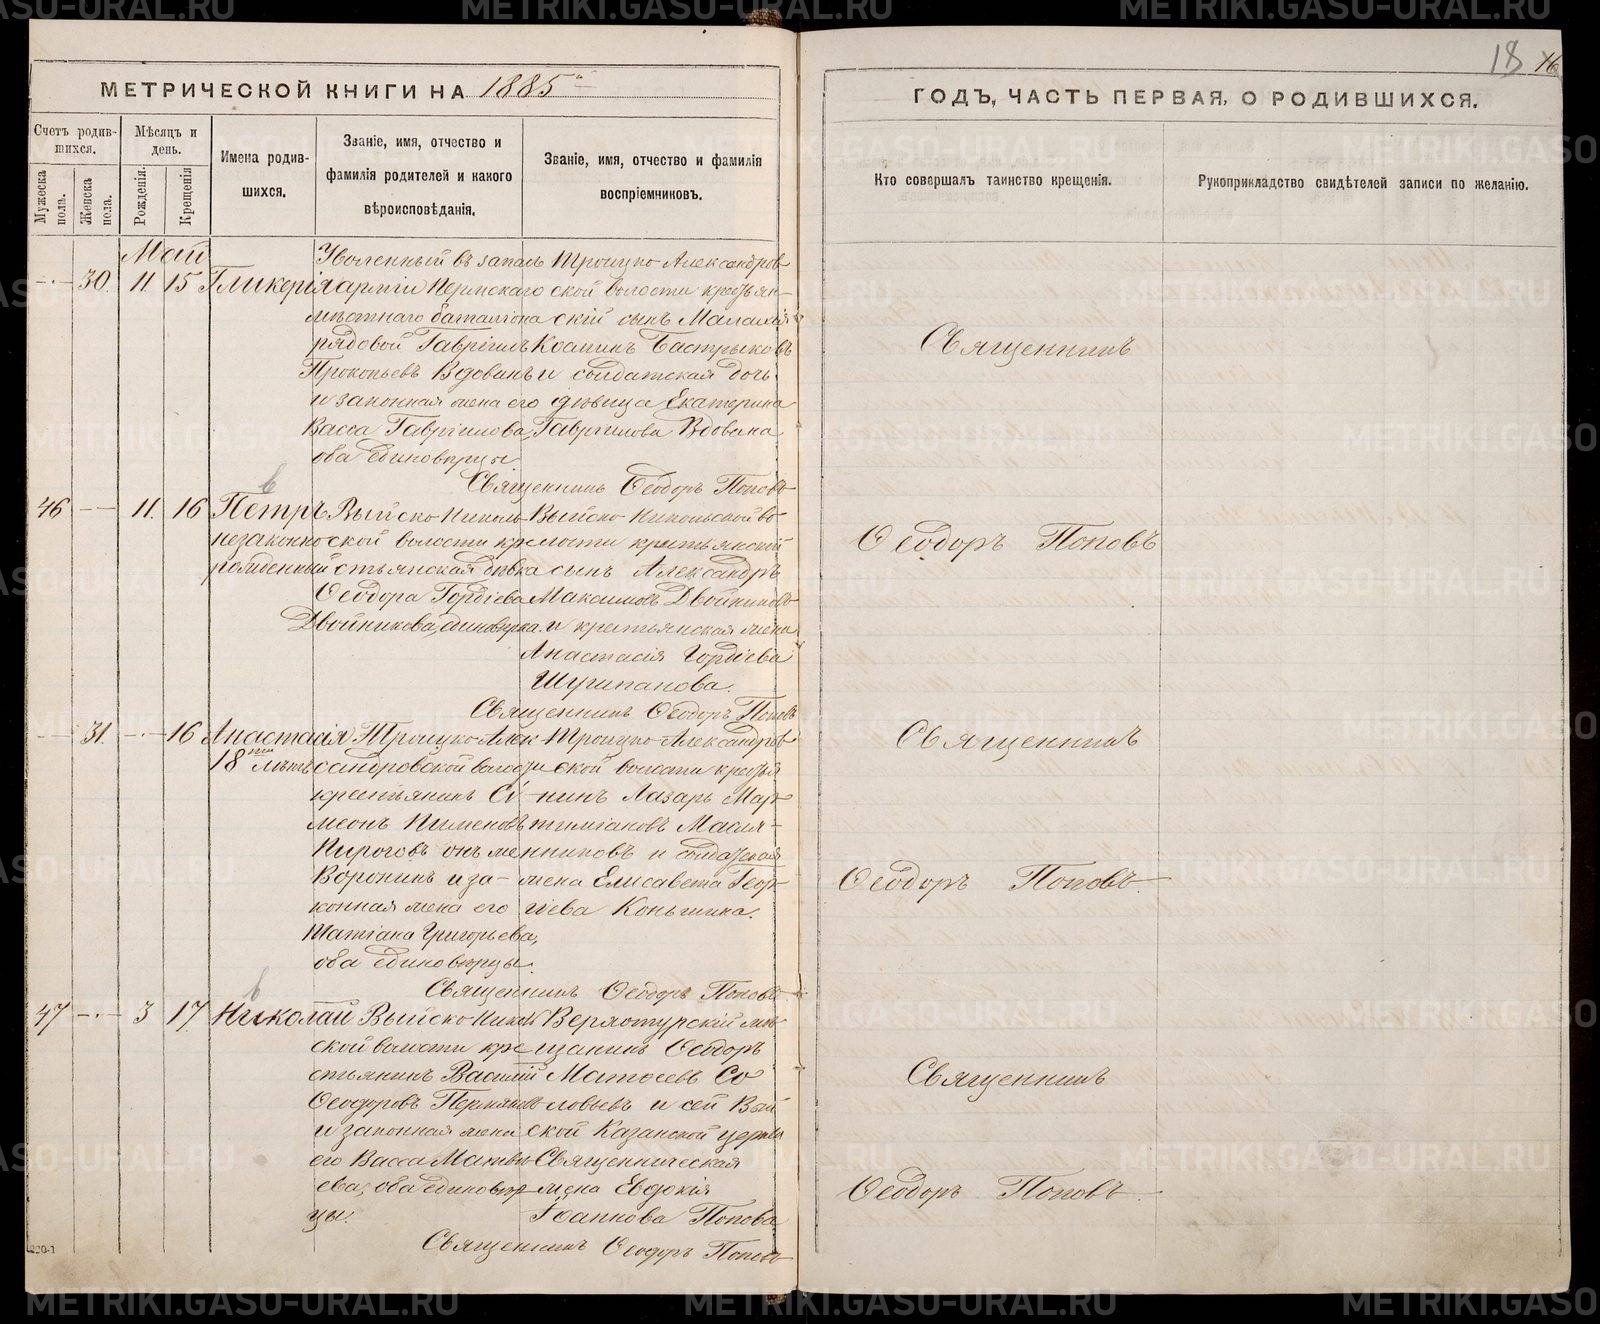 МЕТРИЧЕСКОЙ КНИГИ НА 1885
ГОДЪ, ЧАСТЬ ПЕРВАЯ, О РОДИВШИХСЯ.
18
Счетъ родив-
шихся.
Мужеска пола.
Женска пола.
Мѣсяцъ и день.
Рожденія.
Крещенія
Имена родив-
шихся.
Званіе, имя, отчество и
фамилія родителей и какого
вѣроисповѣданія.
Званіе, имя, отчество и фамилія
воспріемниковъ.
Кто совершалъ таинство крещенія.
Рукоприкладство свидѣтелей записи по желанію.
Май
30. 11. 15 Гликерія
Уволенный въ запасъ
арміи Пермскаго
мѣстнаго баталіона
рядовой Гавріилъ
Прокопьевъ Вдовинъ
и законная жена его
Васса Гавріилова,
оба единовѣрцы.
Троицко-Александров
ской волости крестьян-
скій сынъ Малахія
Косминъ Бастрыковъ
и солдатская дочь
дѣвица Екатерина
Гавріилова Вдовина
Священникъ Ѳеодоръ Поповъ
Священникъ
Ѳеодоръ Поповъ
46 11. 16 Петръ
незаконно
рожденный
Выйско-Николь
ской волости кре
стьянская дѣвка
Ѳеодора Гордіева
Двойникова, единовѣрка.
Выйско-Никольской во
лости крестьянскій
сынъ Александръ
Максимовъ Двойниковъ
и крестьянская жена
Анастасія Гордіева
Шушпанова.
Священникъ Ѳеодоръ Поповъ
31. 16 Анастасія
18 лѣтъ
Троицко-Алек
сандровской волости
крестьянинъ Сі
меонъ Пименовъ
Пироговъ онъ же
Воронинъ и за-
конная жена его
Татіана Григорьева,
оба единовѣрцы.
Троицко-Александров
ской волости крестья
нинъ Лазарь Мар
тиміановъ Масля-
нниковъ и солдатская
жена Елисавета Геор
гіева Коньшина.
Священникъ Ѳеодоръ Поповъ
Священникъ
Ѳеодоръ Поповъ.
47 3 17 Николай
Выйско-Николь
ской волости кре
стьянинъ Василій
Ѳеодоровъ Пермяковъ
и законная жена
его Васса Матвѣ
ева, оба единовѣр
цы.
Верхотурскій мѣ
щанинъ Ѳеодоръ
Матѳеевъ Со
ловьевъ и сей Вый
ской Казанской церкви
Священническая
жена Евдокія
Іоаннова Попова
Священникъ Ѳеодоръ Поповъ
Священникъ
Ѳеодоръ Поповъ.
220-1
METRIKI.GASO-URAL.RU